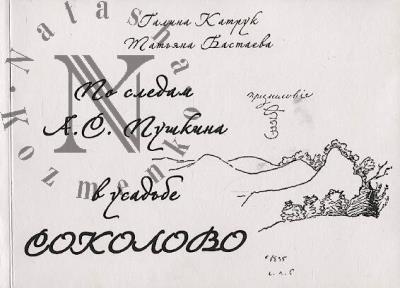 Галина Катрук
Татьяна Бастаева
По следам
А.С. Пушкина
в усадьбе
СОКОЛОВО
1835
Natasha Kozmenko
N